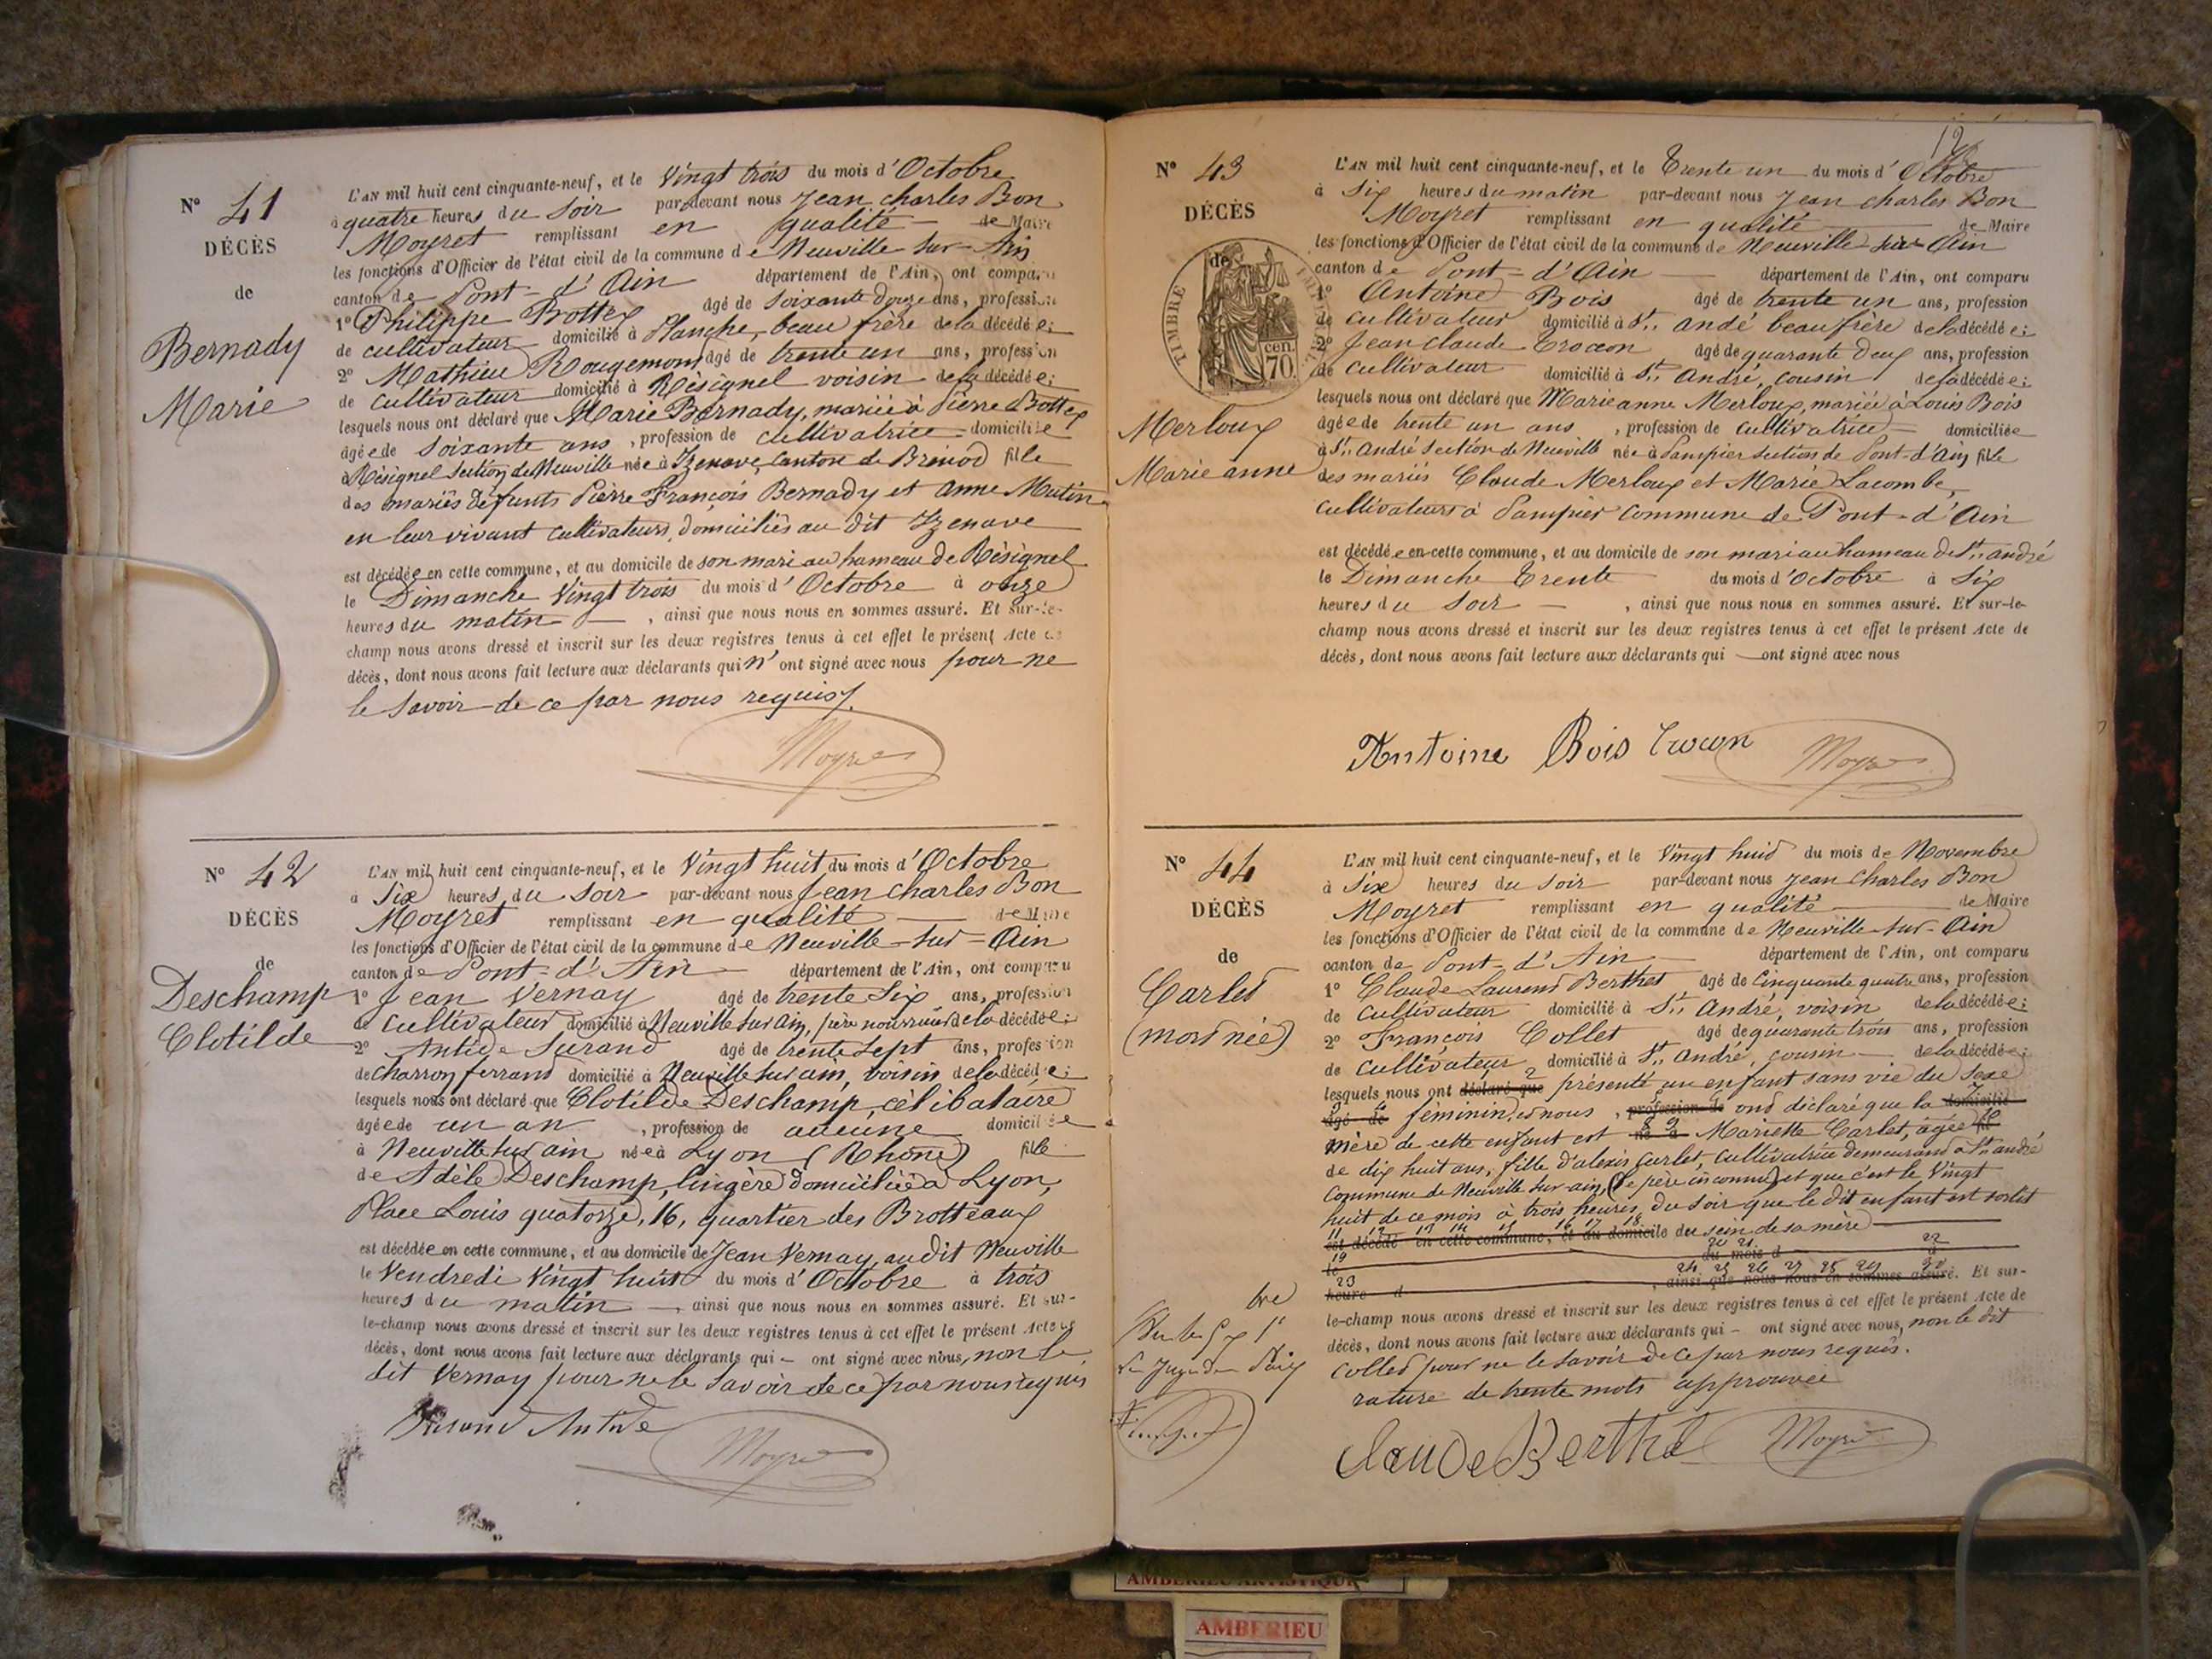 N° 41
DÉCÈS
de
Bernady
Marie
L'AN mil huit cent cinquante-neuf, et le Vingt trois du mois d'Octobre
à quatre heures du Soir par-devant nous Jean charles Bon
Moyret remplissant en qualité de Maire
les fonctions d'Officier de l'état civil de la commune de Neuville sur Ain
canton de Pont-d'Ain département de l'Ain, ont comparu
1° Philippe Brottex âgé de Soixante douze ans, profession
de cultivateur domicilié à Planche, beau frère de la décédée;
2° Mathieu Rougemont âgé de trente un ans, profession
de cultivateur domicilié à Résignel voisin de la décédée;
lesquels nous ont déclaré que Marie Bernady, mariée à Pierre Brottex
âgée de Soixante ans, profession de cultivatrice domiciliée
à Résignel Section de Neuville née à Izenave, Canton de Brénod fille
des mariés défunts Pierre François Bernady et Anne Mutin
en leur vivant cultivateurs, domiciliés au dit Izenave
est décédée en cette commune, et au domicile de son mari au hameau de Résignel
le Dimanche Vingt trois du mois d'Octobre à onze
heures du matin, ainsi que nous nous en sommes assuré. Et sur-le-
champ nous avons dressé et inscrit sur les deux registres tenus à cet effet le présent Acte de
décès, dont nous avons fait lecture aux déclarants qui n'ont signé avec nous pour ne
le Savoir de ce par nous requis.
Moyret
N° 42
DÉCÈS
de
Deschamp
Clotilde
L'AN mil huit cent cinquante-neuf, et le Vingt huit du mois d'Octobre
à Six heures du Soir par-devant nous Jean Charles Bon
Moyret remplissant en qualité de Maire
les fonctions d'Officier de l'état civil de la commune de Neuville-sur-Ain
canton de Pont-d'Ain département de l'Ain, ont comparu
1° Jean Vernay âgé de trente Six ans, profession
de cultivateur domicilié à Neuville sur Ain, père nourricier de la décédée;
2° Antide Surand âgé de trente Sept ans, profession
de charron ferrand domicilié à Neuville sur ain, voisin de la décédée;
lesquels nous ont déclaré que Clotilde Deschamp, célibataire
âgée de un an, profession de aucune domiciliée
à Neuville sur ain née à Lyon (Rhône) fille
de Adèle Deschamp, lingère domiciliée à Lyon,
Place Louis quatorze, 16, quartier des Brotteaux
est décédée en cette commune, et au domicile de Jean Vernay, au dit Neuville
le Vendredi Vingt huit du mois d'Octobre à trois
heures du matin, ainsi que nous nous en sommes assuré. Et sur-
le-champ nous avons dressé et inscrit sur les deux registres tenus à cet effet le présent Acte de
décès, dont nous avons fait lecture aux déclarants qui ont signé avec nous, non le
dit Vernay pour ne le Savoir de ce par nous requis
Surand Antide
Moyret
N° 43
DÉCÈS
de
TIMBRE
cen.
70.
Merloux
Marie anne
L'AN mil huit cent cinquante-neuf, et le Trente un du mois d'Octobre
à Six heures du matin par-devant nous Jean charles Bon
Moyret remplissant en qualité de Maire
les fonctions d'Officier de l'état civil de la commune de Neuville-sur-Ain
canton de Pont-d'Ain département de l'Ain, ont comparu
1° Antoine Bois âgé de trente un ans, profession
de cultivateur domicilié à St. andé beau frère de la décédée;
2° Jean claude Trocon âgé de quarante deux ans, profession
de cultivateur domicilié à St. André, cousin de la décédée;
lesquels nous ont déclaré que Marie anne Merloux, mariée à Louis Bois
âgée de trente un ans, profession de cultivatrice domiciliée
à St. André section de Neuville née à Dampier section de Pont-d'Ain fille
des mariés Claude Merloux et Marie Lacombe,
cultivateurs à Dampier commune de Pont-d'Ain
est décédée en cette commune, et au domicile de son mari au hameau de St. andré
le Dimanche Trente du mois d'Octobre à Six
heures du Soir, ainsi que nous nous en sommes assuré. Et sur-le-
champ nous avons dressé et inscrit sur les deux registres tenus à cet effet le présent Acte de
décès, dont nous avons fait lecture aux déclarants qui ont signé avec nous
Antoine Bois Trocon Moyret
N° 44
DÉCÈS
de
Carlet
(mort née)
L'AN mil huit cent cinquante-neuf, et le Vingt huit du mois de Novembre
à Six heures du Soir par-devant nous Jean Charles Bon
Moyret remplissant en qualité de Maire
les fonctions d'Officier de l'état civil de la commune de Neuville-sur-Ain
canton de Pont-d'Ain département de l'Ain, ont comparu
1° Claude Laurent Berthet âgé de Cinquante quatre ans, profession
de Cultivateur domicilié à St. André, voisin de la décédée;
2° François Collet âgé de quarante trois ans, profession
de cultivateur domicilié à St. André, cousin de la décédée;
lesquels nous ont déclaré que présenté un enfant sans vie du Sexe
âgé de féminin, et nous, profession de ont déclaré que la domicilié
mère de cette enfant est né à Mariette Carlet, âgée fil
de dix huit ans, fille d'alexis Carlet, cultivatrice demeurant à St. andré
commune de Neuville sur-ain, (le père inconnu) et que c'est le Vingt
huit de ce mois à trois heures du Soir que le dit enfant est sortit
est décédé en cette commune, et au domicile du sein de sa mère
le du mois d à
heure d, ainsi que nous nous en sommes assuré. Et sur-
le-champ nous avons dressé et inscrit sur les deux registres tenus à cet effet le présent Acte de
décès, dont nous avons fait lecture aux déclarants qui ont signé avec nous, non le dit
Collet pour ne le savoir de ce par nous requis.
rature de trente mots approuvée
Le Juge de Paix
Claude Berthet Moyret
AMBERIEU ARTISTIQUE
AMBERIEU